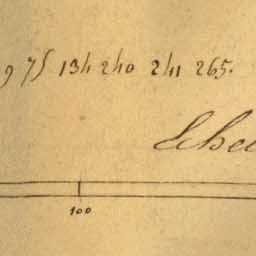 9 75 134 240 241 265.
Echel
100